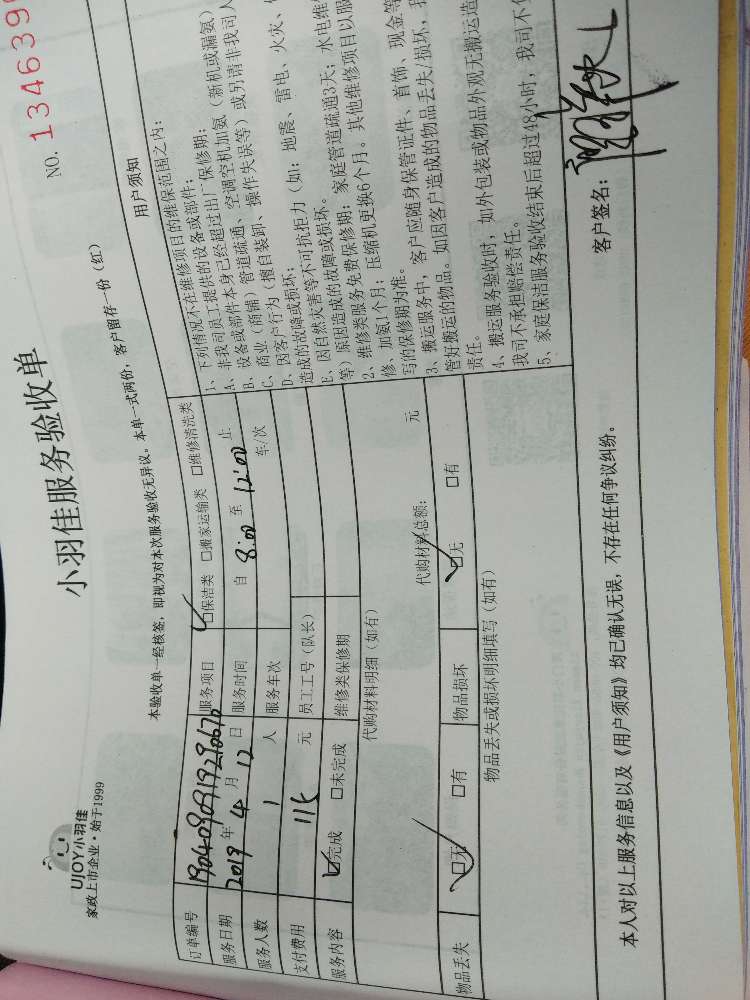 UJOY小羽佳
家政上市企业·始于1999
小羽佳服务验收单
NO. 134639
本验收单一经核签，即视为对本次服务验收无异议。本单一式两份，客户留存一份（红）
订单编号 19040909192910676
服务项目 ☑保洁类 □搬家运输类 □维修清洗类
服务日期 2019年4月12日
服务时间 自 8:00 至 12:00 止
服务人数 1 人
服务车次 车/次
支付费用 115 元
员工工号（队长）
服务内容 ☑完成 □未完成
维修类保修期
代购材料明细（如有）
代购材料总额： 元
物品丢失 ☑无 □有
物品损坏 ☑无 □有
物品丢失或损坏明细填写（如有）
用户须知
1、下列情况不在维修项目的维保范围之内：
A、非我司员工提供的设备或部件；
设备或部件本身已经超过出厂保修期；
B、商业（商铺）管道疏通、空调空机加氨（新机或漏氨）
C、因客户行为（擅自装卸、操作失误等）或另请非我司人
造成的故障或损坏；
D、因自然灾害等不可抗拒力（如：地震、雷电、火灾、
等）原因造成的故障或损坏。
2、维修类服务免费保修期：家庭管道疏通3天；水电维
修、加氨1个月；压缩机更换6个月。其他维修项目以服
写的保修期为准。
3、搬运服务中，客户应随身保管证件、首饰、现金等
管好搬运的物品。如因客户造成的物品丢失/损坏，我
责任。
4、搬运服务验收时，如外包装或物品外观无搬运造
我司不承担赔偿责任。
5、家庭保洁服务验收结束后超过48小时，我司不
本人对以上服务信息以及《用户须知》均已确认无误，不存在任何争议纠纷。
客户签名：